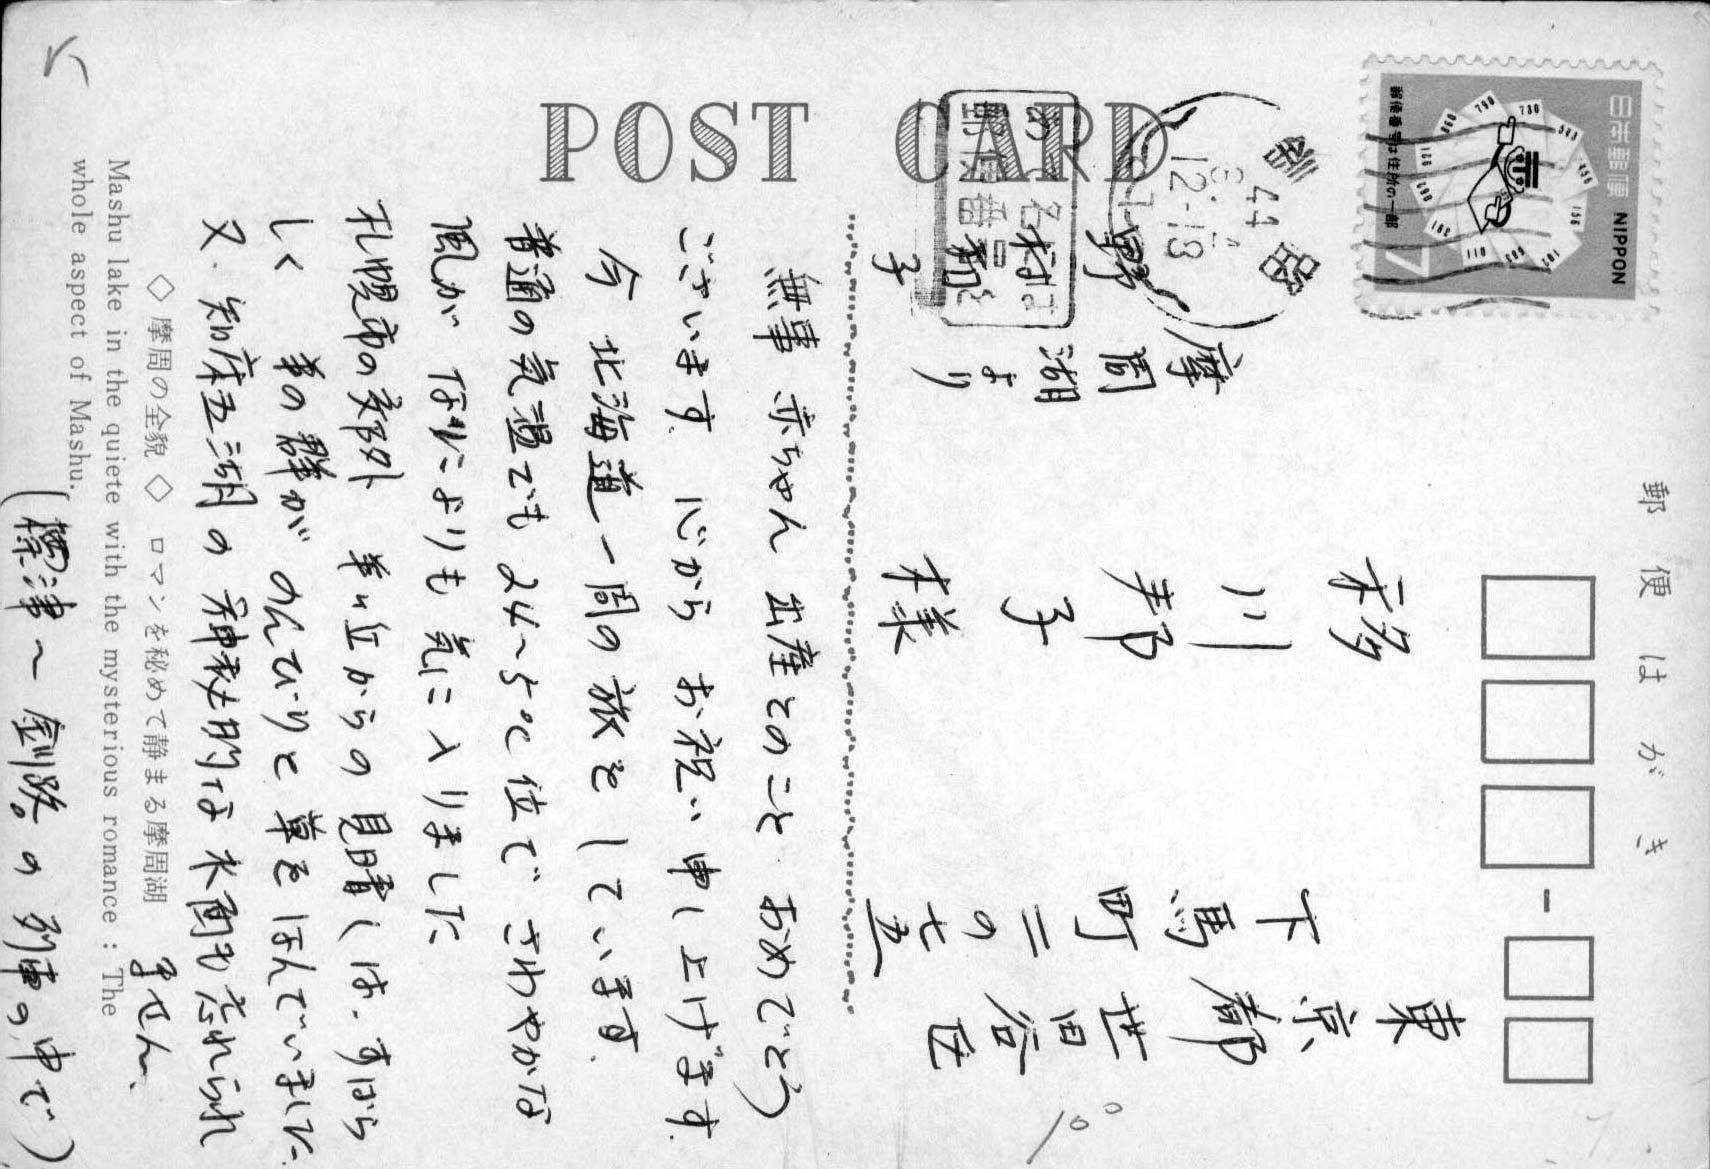 POST CARD
郵便はがき
日本郵便 NIPPON
郵便番号は住所の一部
7
釧路
44
12-18
あて名には
郵便番号を
東京都世田谷区
下馬町二の七五
移川邦子様
摩周湖より
和子
無事 赤ちゃん 出産とのこと おめでとう
ございます 心から お祝い申し上げます.
今 北海道一周の旅をしています.
普通の気温でも 24~5℃位で さわやかな
風が なによりも 気に入りました
札幌市の郊外 羊ヶ丘からの見晴しは.すばら
しく 羊の群がのんびりと草をはんでいました.
又. 知床五湖の神秘的な水面も忘れられ
ません.
(標津~釧路の列車の中で)
◇ 摩周の全貌 ◇ ロマンを秘めて静まる摩周湖
Mashu lake in the quiete with the mysterious romance : The
whole aspect of Mashu.